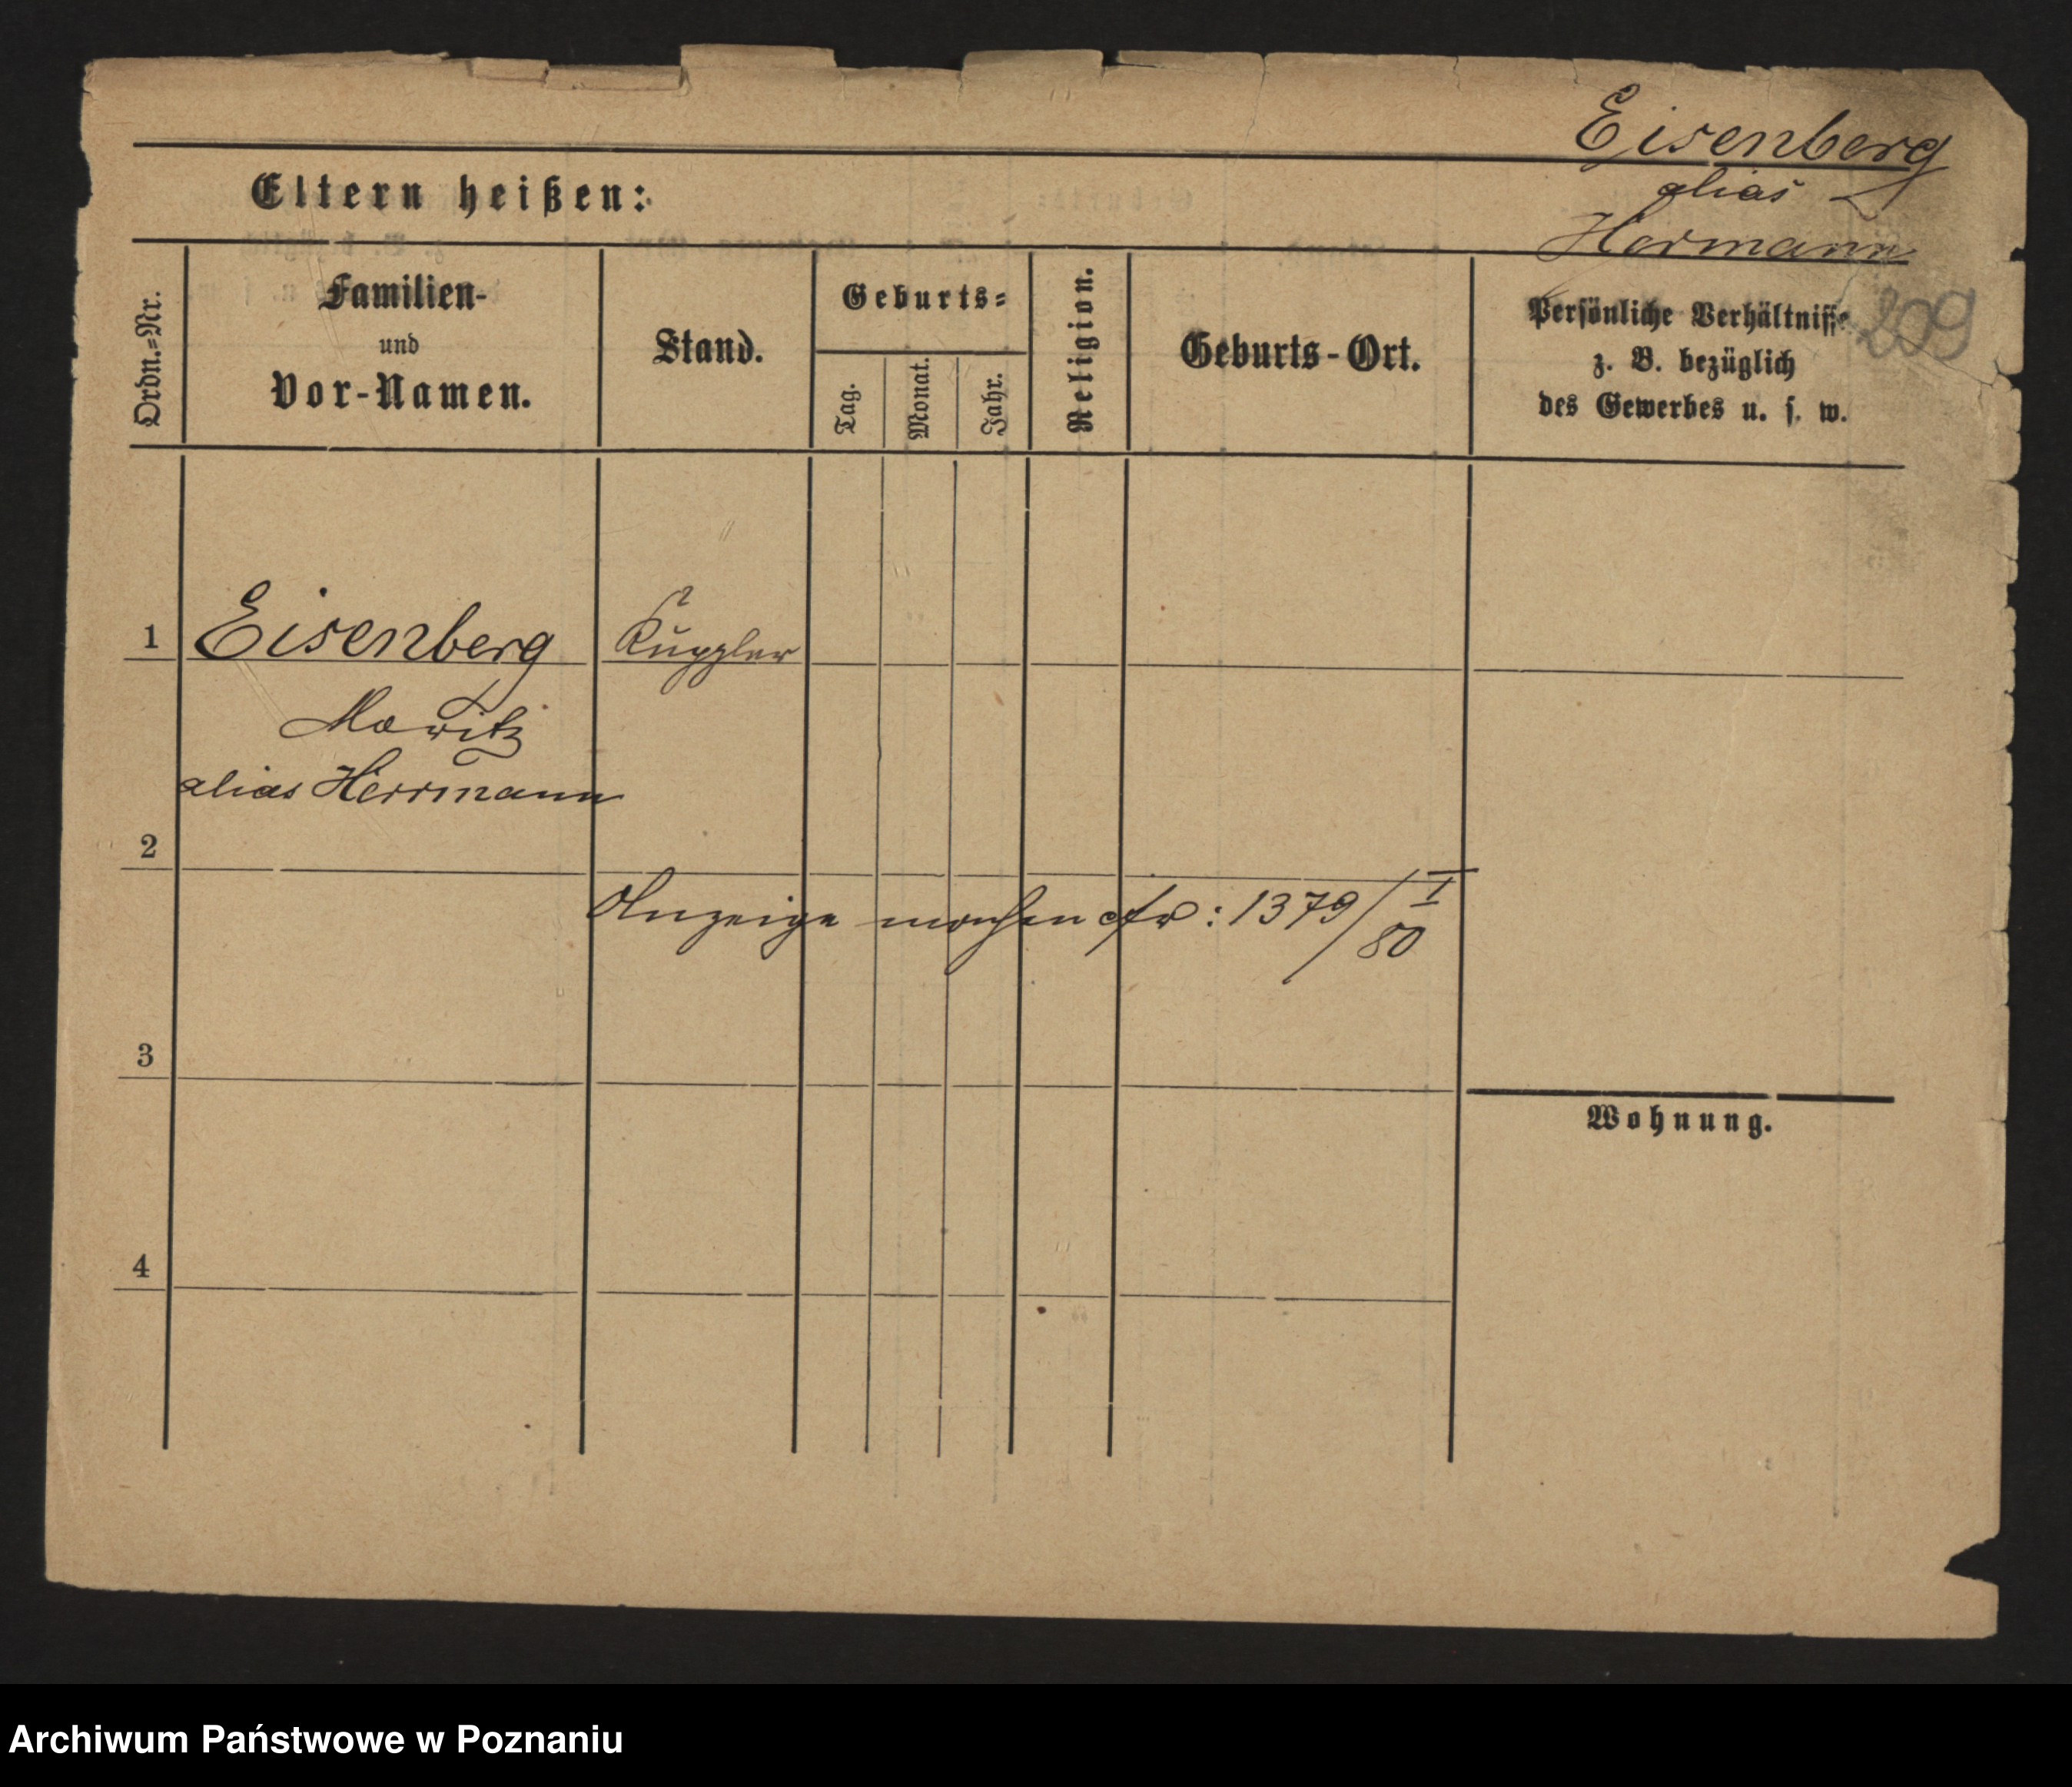 Eisenberg
alias
Hermann
209
Eltern heißen:
Ordn.=Nr.
Familien-
und
Vor-Namen.
Stand.
Geburts=
Tag.
Monat.
Jahr.
Religion.
Geburts-Ort.
Persönliche Verhältnisse
z. B. bezüglich
des Gewerbes u. s. w.
1
Eisenberg
Kuppler
Moritz
alias Herrmann
2
Anzeige machen cfr: 1379/I
80
3
Wohnung.
4
Archiwum Państwowe w Poznaniu